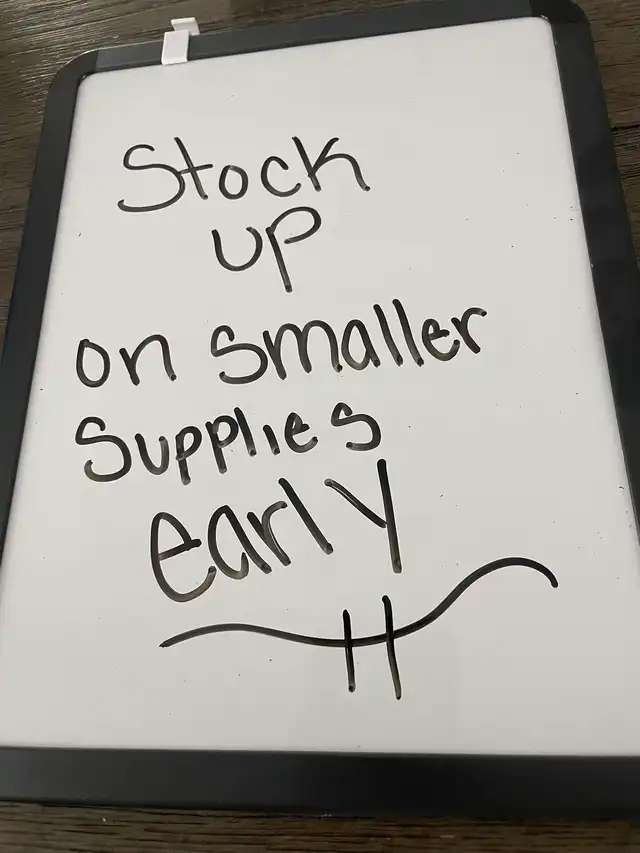 Stock
up
on smaller
supplies
early